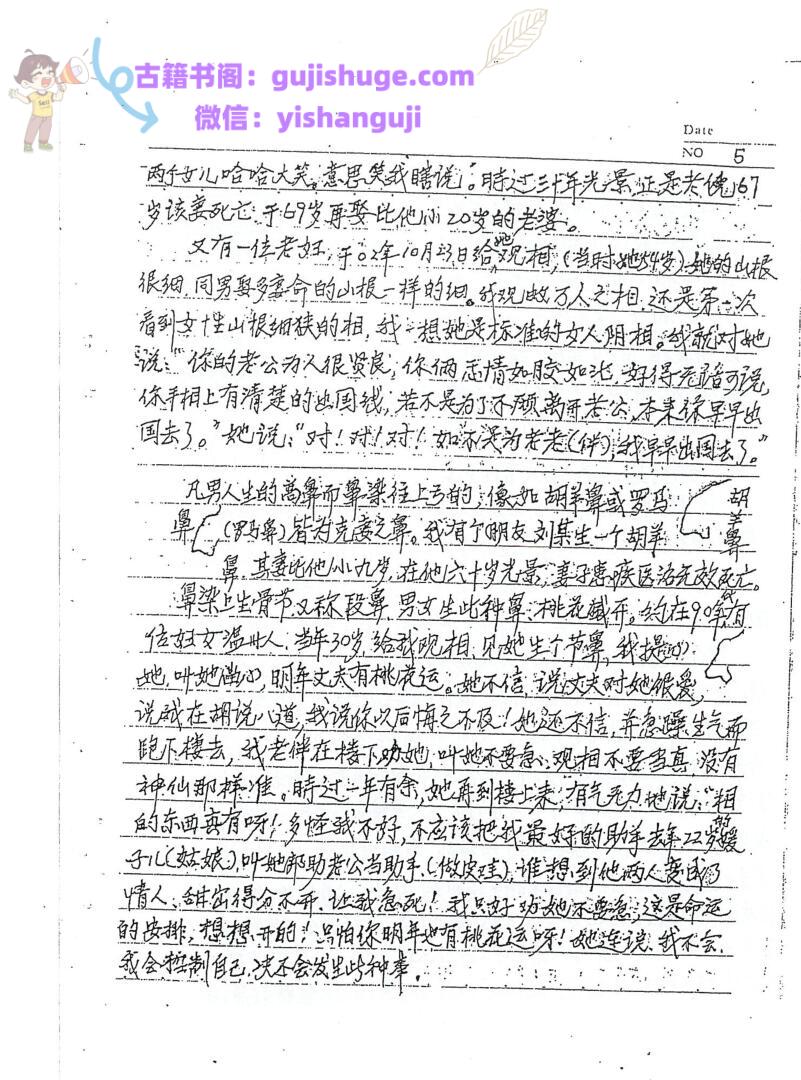 古籍书阁：gujishuge.com
微信：yishanguji
Date
NO 5
两个女儿哈哈大笑。意思笑我瞎说。时过三十年光景,正是老倪67
岁该妻死亡,于69岁再娶比他小20岁的老婆。
又有一位老妇,于02年10月23日给她观相,(当时她54岁)她的山根
很细,同男娶多妻命的山根一样的细。我观数万人之相,还是第一次
看到女性山根细狭的相,我一想她是标准的女人阴相。我就对她
说:“你的老公为人很贤良,你俩恋情如胶如漆,好得无话可说,
你手相上有清楚的出国线,若不是为了不愿离开老公,本来你早早出
国去了。”她说:“对!对!对!如不是为老老(伴),我早早出国去了。”
凡男人生的高鼻而鼻梁往上弓的,像如胡羊鼻或罗马 胡羊鼻
鼻 (罗马鼻)皆为克妻之鼻。我有个朋友刘某生一个胡羊
鼻,其妻比他小九岁,在他六十岁光景,妻子患疾医治无效死亡。
鼻梁上生骨节又称段鼻,男女生此种鼻,桃花盛开。约在90年代有
位妇女温州人,当年30岁,给我观相,见她生个节鼻,我提
她,叫她当心,明年丈夫有桃花运。她不信,说丈夫对她很爱,
说我在胡说八道,我说你以后悔之不及!她还不信,并急躁生气而
跑下楼去,我老伴在楼下劝她,叫她不要急,观相不要当真,没有
神仙那样准。时过一年有余,她再到楼上来,有气无力地说:“相
的东西真有呀!多怪我不好,不应该把我最好的助手去年22岁的
子儿(姑娘),叫她帮助老公当助手,(做皮鞋),谁想到他两人变成了
情人,甜密得分不开,让我急死!我只好劝她不要急,这是命运
的安排,想想开的!只怕你明年也有桃花运呀!她连说,我不会,
我会控制自己,决不会发生此种事。